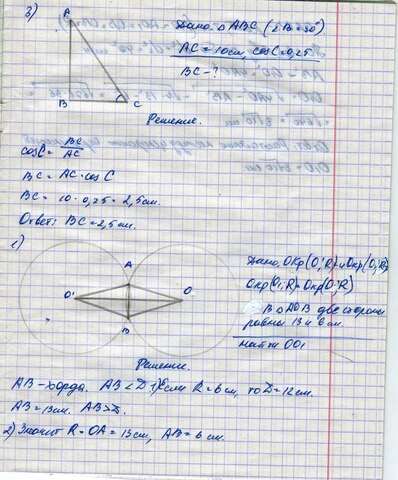 3)
A
B
C
Дано: △ABC (∠B=90°)
AC=10см, cosC=0,25
BC-?
Решение.
cosC = BC/AC
BC = AC·cosC
BC = 10·0,25 = 2,5см.
Ответ: BC=2,5см.
1)
A
O'
O
B
Дано: Окр(O;R) и Окр(O';R)
Окр(O;R)=Окр(O'R)
В △AOB две стороны
равны 13 и 6 см.
Найти OO1
Решение.
AB-хорда. AB<D 1) Если R=6см, то D=12см.
AB=13см. AB>D.
2) Значит R=OA=13см, AB=6см.